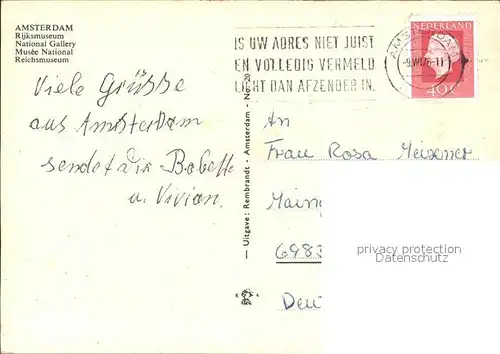 AMSTERDAM
Rijksmuseum
National Gallery
Musée National
Reichsmuseum
IS UW ADRES NIET JUIST
EN VOLLEDIG VERMELD
LICHT DAN AFZENDER IN.
AMSTERDAM
NEDERLAND
40c
Viele Grüsse
aus Amsterdam
sendet Dir Babette
u. Vivian.
— Uitgave: Rembrandt - Amsterdam - No. 20
An
Frau Rosa Meixner
Maing
6983
privacy protection
Datenschutz
Deu